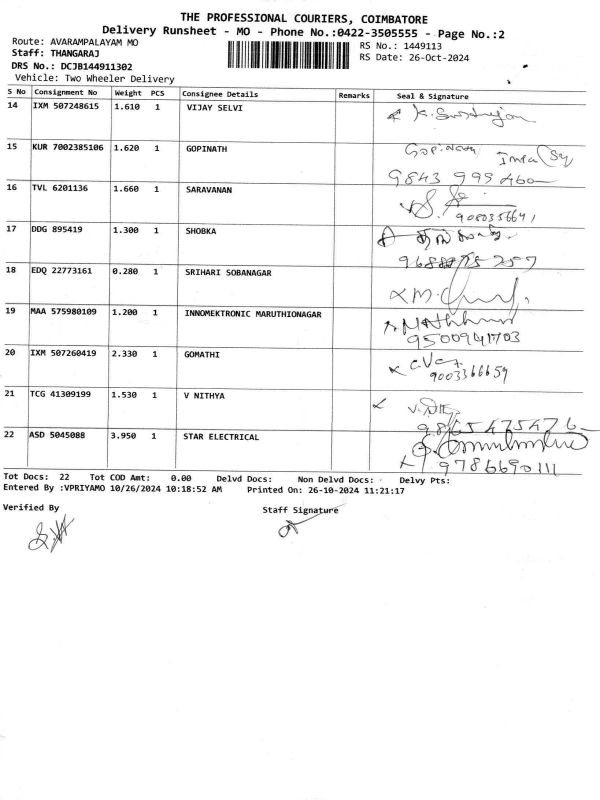 THE PROFESSIONAL COURIERS, COIMBATORE
Delivery Runsheet - MO - Phone No.:0422-3505555 - Page No.:2
Route: AVARAMPALAYAM MO
RS No.: 1449113
Staff: THANGARAJ
RS Date: 26-Oct-2024
DRS No.: DCJB144911302
Vehicle: Two Wheeler Delivery
S No Consignment No Weight PCS Consignee Details Remarks Seal & Signature
14 IXM 507248615 1.610 1 VIJAY SELVI
15 KUR 7002385106 1.620 1 GOPINATH
9843 999 460
16 TVL 6201136 1.660 1 SARAVANAN
9080355641
17 DDG 895419 1.300 1 SHOBKA
18 EDQ 22773161 0.280 1 SRIHARI SOBANAGAR
19 MAA 575980109 1.200 1 INNOMEKTRONIC MARUTHIONAGAR
9500941703
20 IXM 507260419 2.330 1 GOMATHI
9003366659
21 TCG 41309199 1.530 1 V NITHYA
9865475476
22 ASD 5045088 3.950 1 STAR ELECTRICAL
9786690111
Tot Docs: 22 Tot COD Amt: 0.00 Delvd Docs: Non Delvd Docs: Delvy Pts:
Entered By :VPRIYAMO 10/26/2024 10:18:52 AM Printed On: 26-10-2024 11:21:17
Verified By Staff Signature